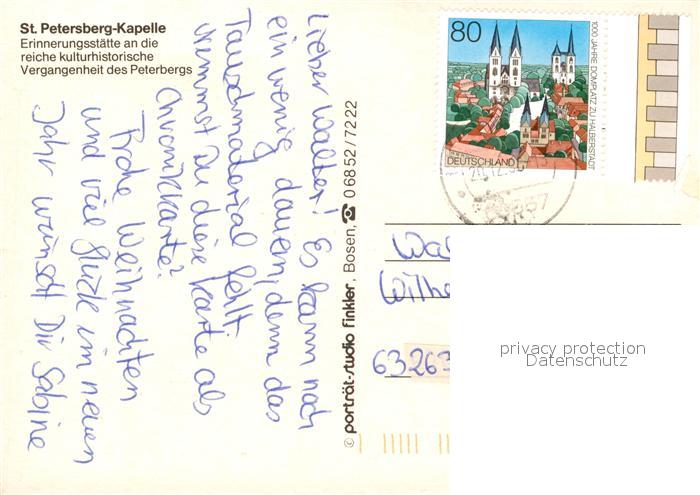 St. Petersberg-Kapelle
Erinnerungsstätte an die
reiche kulturhistorische
Vergangenheit des Peterbergs
Lieber Walter! Es kann noch
ein wenig dauern, denn das
Tauschmaterial fehlt.
Nimmst Du diese Karte als
Chronikkarte?
Frohe Weihnachten
und viel Glück im neuen
Jahr wünscht Dir Sabine
© porträt-studio finkler, Bosen, ☎ 06852/7222
80
1000 JAHRE DOMPLATZ ZU HALBERSTADT
DEUTSCHLAND
Wal
Wilhe
63263
privacy protection
Datenschutz